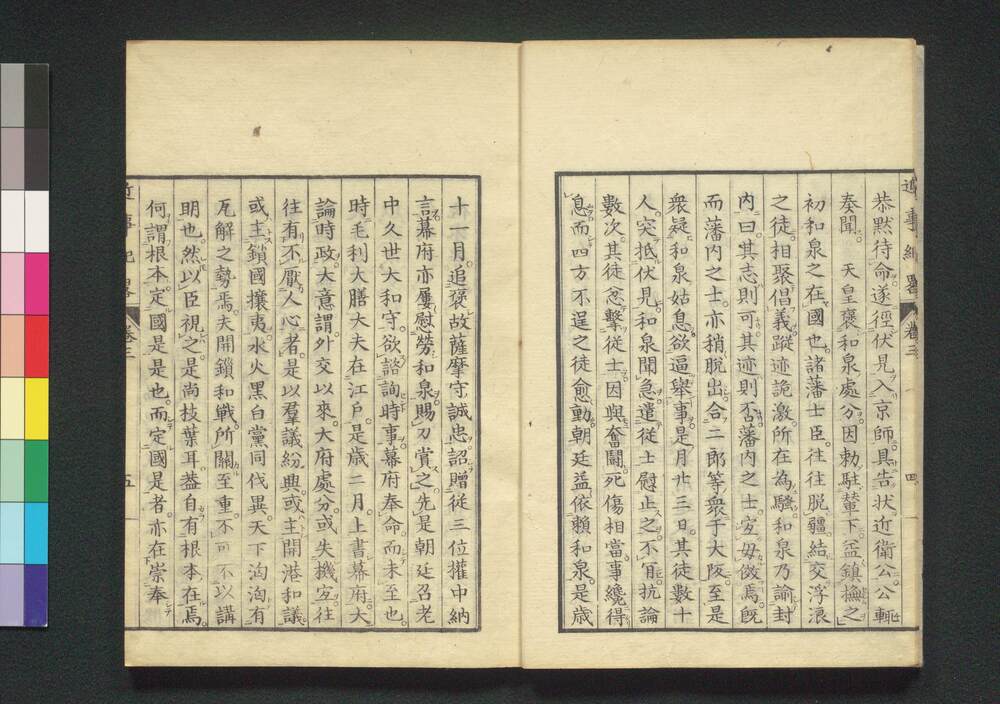 恭默待命。遂徑伏見入京師。具告狀近衛公。公輒
奏聞。　天皇褒和泉處分。因勅駐輦下。益鎮撫之
初和泉之在國也。諸藩士臣。往往脫疆。結交浮浪
之徒。相聚倡義。蹤迹詭激。所在為騷。和泉乃諭封
內曰。其志則可。其迹則否。藩內之士。宜毋傚焉。既
而藩內之士。亦稍脫出。合二郎等衆于大阪。至是
衆疑和泉姑息。欲逼舉事。是月廿三日。其徒數十
人。突抵伏見。和泉聞。急遣從士慰止之。不肎。抗論
數次。其徒忿擊從士。因與奮鬪。死傷相當。事纔得
息。而四方不逞之徒愈動。朝廷益依賴和泉。是歲
近事紀畧
卷三
四
十一月。追褒故薩摩守誠忠。詔贈從三位權中納
言。幕府亦屢慰勞和泉。賜刀賞之。先是朝廷召老
中久世大和守。欲諮詢時事。幕府奉命。而未至也。
時毛利大膳大夫在江戶。是歲二月。上書幕府。大
論時政。大意謂。外交以來。大府處分。或失機宜。往
往有不厭人心者。是以羣議紛興。或主開港和議。
或主鎖國攘夷。水火黑白。黨同伐異。天下洶洶。有
瓦解之勢焉。夫開鎖和戰。所關至重。不可不以講
明也。然以臣視之。是尚枝葉耳。蓋自有根本在焉。
何謂根本。定國是是也。而定國是者。亦在崇奉
近事紀畧
卷三
五